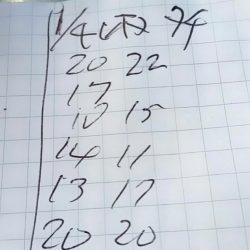 20 22
17
10 15
14 11
13 17
20 20